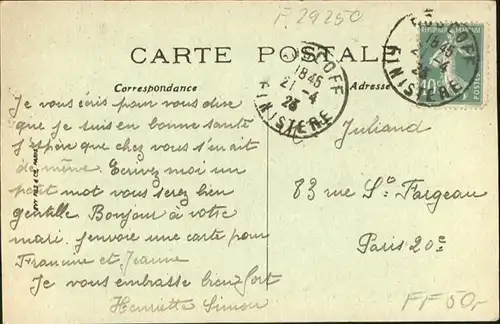 F 29250
CARTE POSTALE
Correspondance
Adresse
ROSCOFF
18 45
21-4
23
FINISTERE
ROSCOFF
18 45
21-4
23
FINISTERE
POSTES
Je vous écris pour vous dire
que je suis en bonne santé
J'espère que chez vous s'en ait
de même. Ecrivez moi un
petit mot vous serez bien
gentille. Bonjour à votre
mari. J'envoie une carte pour
Francine et Jeanne
Je vous embrasse bien fort
Henriette Simon
Juliand
83 rue St Fargeau
Paris 20e
FF 50,-